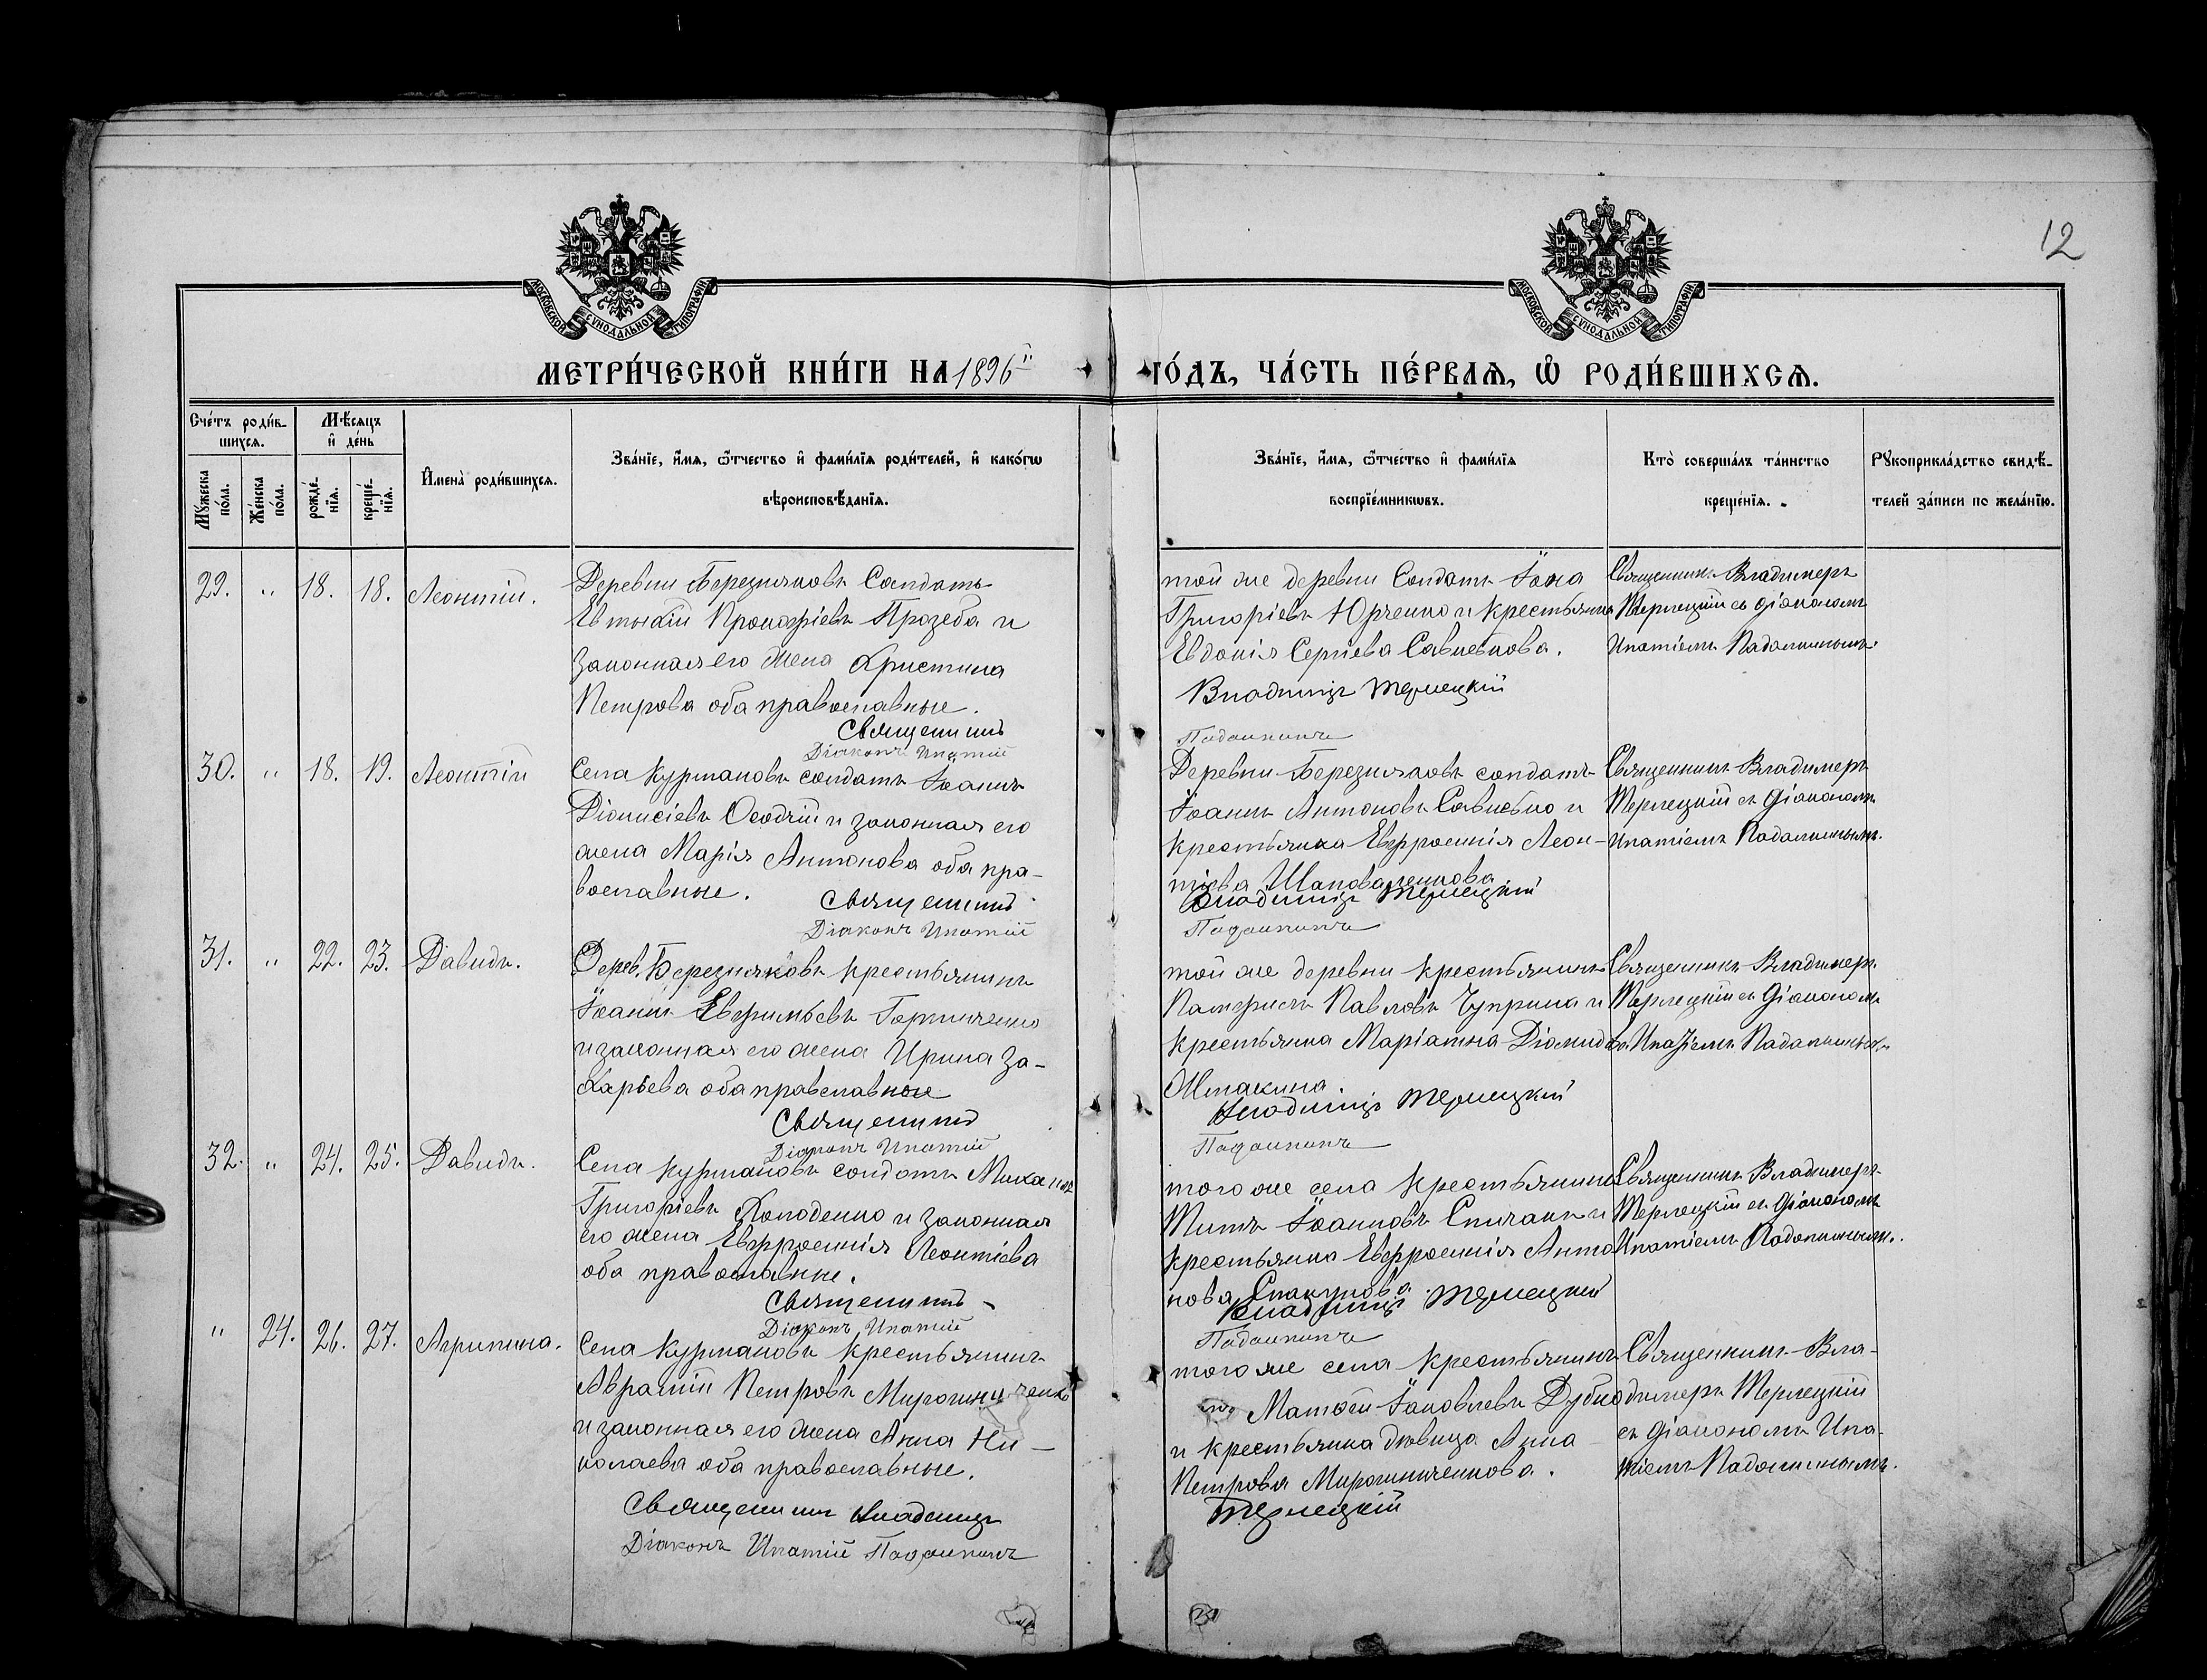 12
МОСКОВСКОЙ СѴНОДАЛЬНОЙ ТИПОГРАФІИ
МОСКОВСКОЙ СѴНОДАЛЬНОЙ ТИПОГРАФІИ
МЕТРИ́ЧЕСКОЙ КНИ́ГИ НА 1896й ГО́ДЪ, ЧА́СТЬ ПЕ́РВАѦ, Ѽ РОДИ́ВШИХСѦ.
Сче́тъ роди́в-
шихсѧ.
Мѣ́сѧцъ
и҆ де́нь
Мꙋ́жеска по́ла.
Же́нска по́ла.
рожде́-
нїѧ.
креще́-
нїѧ.
И҆мена̀ роди́вшихсѧ.
Зва́нїе, и҆́мѧ, ѻ҆́тчество и҆ фами́лїѧ роди́телей, и҆ како́гѡ
вѣроисповѣ́данїѧ.
Зва́нїе, и҆́мѧ, ѻ҆́тчество и҆ фами́лїѧ
воспрїе́мникѡвъ.
Кто̀ соверша́лъ та́инство
креще́нїѧ.
Рꙋкоприкла́дство свидѣ́-
телей за́писи по жела́нїю.
29. " 18. 18. Леонтій.
Деревни Березняковъ Солдатъ
Евтихій Прокофіевъ Празеба и
законная его жена Христина
Петрова оба православные.
Священникъ
Діаконъ Ипатій
той же деревни Солдатъ Іона
Григоріевъ Юрченко и крестьянка
Евдокія Сергіева Савчекова.
Владиміръ Терлецкій
Падалкинъ
Священникъ Владимеръ
Терлецкій съ діакономъ
Ипатіемъ Падалкинымъ.
30. " 18. 19. Леонтій
Села Курмановъ солдатъ Іоаннъ
Діонисіевъ Осадчій и законная его
жена Марія Антонова оба пра-
вославные.
Священникъ
Діаконъ Ипатій
Деревни Березняковъ солдатъ
Іоаннъ Антоновъ и
крестьянка Евфросинія Леон-
тіева Шаповаленкова
Владиміръ Терлецкій
Падалкинъ
Священникъ Владимеръ
Терлецкій съ діакономъ
Ипатіемъ Падалкинымъ.
31. " 22. 23. Давидъ.
Дерев. Березняковъ крестьянинъ
Іоаннъ Евфимьевъ
и законная его жена Ирина За-
харьева оба православные
Священникъ
Діаконъ Ипатій
той же деревни крестьянинъ
Павловъ Чуприна и
крестьянка Маріанна
Владиміръ Терлецкій
Падалкинъ
Священникъ Владимеръ
Терлецкій съ діакономъ
Ипатіемъ Падалкинымъ
32. " 24. 25. Давидъ.
Села Курмановъ солдатъ Михаилъ
Григоріевъ Колоденко и законная
его жена Евфросинія Леонтіева
оба православные.
Священникъ
Діаконъ Ипатій
того же села крестьянинъ
Титъ Іоанновъ Спичакъ и
крестьянка Евфросинія Анто
нова
Владиміръ Терлецкій
Падалкинъ
Священникъ Владимеръ
Терлецкій съ діакономъ
Ипатіемъ Падалкинымъ.
" 24. 26. 27. Агрипина.
Села Курмановъ крестьянинъ
Авраамій Петровъ Мирошниченко
и законная его жена Анна Ни-
колаева оба православные.
Священникъ Владиміръ
Діаконъ Ипатій Падалкинъ
того же села крестьянинъ
Матѳей Іаковлевъ
и крестьянка дѣвица Анна
Петрова Мирошниченкова.
Терлецкій
Священникъ Вла-
димеръ Терлецкій
съ діакономъ Ипа-
тіемъ Падалкинымъ.